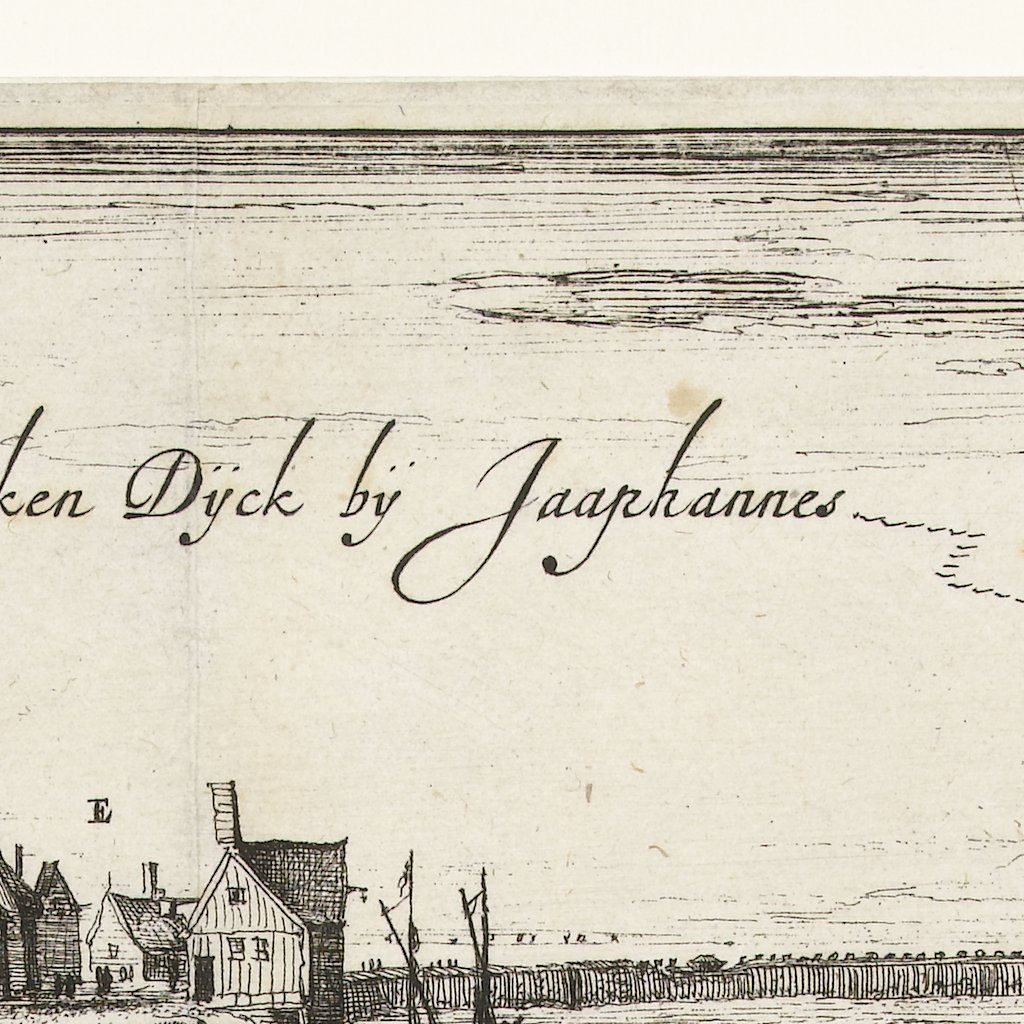 ken Dÿck bÿ Jaaphannes
E